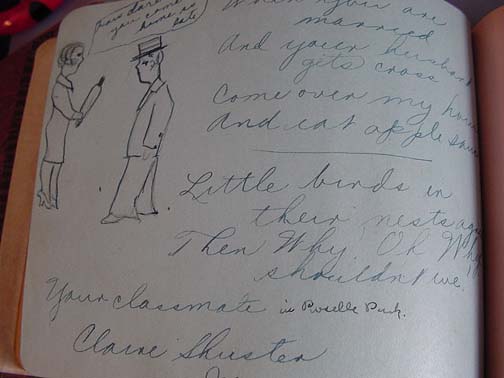 How dare
you come
home so
late
When you are
married
And your husband
gets cross
Come over my house
And eat apple sauce
Little birds in
their nests agree
Then Why, Oh Why
shouldn't we.
Your classmate in Roselle Park.
Claire Shuster